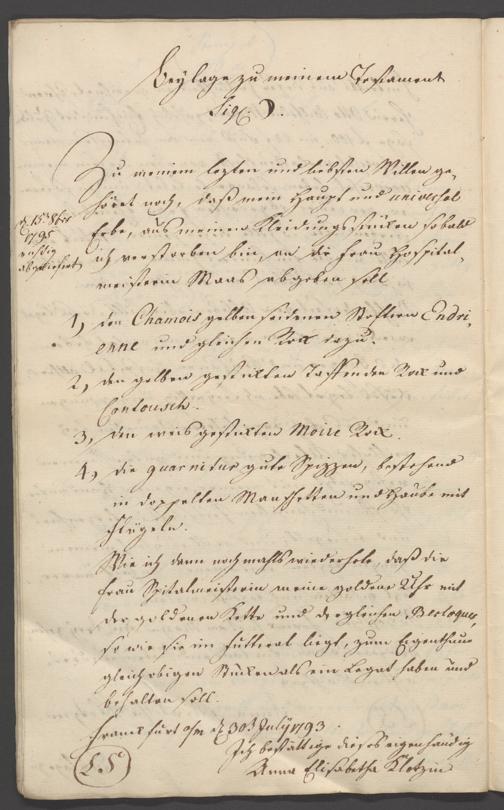 Beylage zu meinem Testament
Sig. D.
Zu meinem lezten und liebsten Willen ge-
höret noch, daß mein Haupt und universal
Erbe, aus meinen Kleidungsstüken sobald
ich verstorben bin, an die Frau Hospital-
meisterin Maas abgeben soll
d 15t 8br
1795
richtig
abgeliefert
1, den Chamois gelben seidenen Stoffern Endri-
enne und gleichen Rok dazu.
2, den gelben gestikten Taffenden Rok und
Contousch.
3, den weis gestikten Moire Rok.
4, die guarnitur gute Spizzen, bestehend
in doppelten Manschetten und Haube mit
Flügeln.
Wie ich dann nochmahls wiederhole, daß die
Frau Spitalmeisterin meine goldene Uhr mit
der goldenen Kette und dergleichen Berloques,
so wie sie im Futteral liegt, zum Eigenthum
gleich obigen Stüken als ein Legat haben und
behalten soll.
Franckfurt a/m d 30t July 1793.
Ich bestättige dieses eigenhändig
Anna Elisabetha Klotzin
L.S